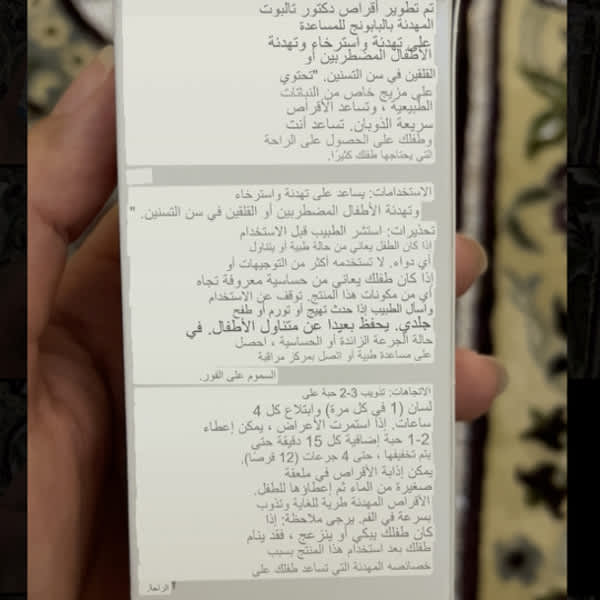 تم تطوير أقراص دكتور تالبوت
المهدئة بالبابونج للمساعدة
على تهدئة واسترخاء وتهدئة
الأطفال المضطربين أو
القلقين في سن التسنين. "تحتوي
على مزيج خاص من النباتات
الطبيعية ، وتساعد الأقراص
سريعة الذوبان. تساعد أنت
وطفلك على الحصول على الراحة
التي يحتاجها طفلك كثيرًا.
الاستخدامات: يساعد على تهدئة واسترخاء
وتهدئة الأطفال المضطربين أو القلقين في سن التسنين. "
تحذيرات: استشر الطبيب قبل الاستخدام
إذا كان الطفل يعاني من حالة طبية أو يتناول
أي دواء. لا تستخدمه أكثر من التوجيهات أو
إذا كان طفلك يعاني من حساسية معروفة تجاه
أي من مكونات هذا المنتج. توقف عن الاستخدام
واسأل الطبيب إذا حدث تهيج أو تورم أو طفح
جلدي. يحفظ بعيدا عن متناول الأطفال. في
حالة الجرعة الزائدة أو الحساسية ، احصل
على مساعدة طبية أو اتصل بمركز مراقبة
السموم على الفور.
الاتجاهات: تذويب 3-2 حبة على
لسان (1 في كل مرة) وابتلاع كل 4
ساعات. إذا استمرت الأعراض ، يمكن إعطاء
1-2 حبة إضافية كل 15 دقيقة حتى
يتم تخفيفها ، حتى 4 جرعات (12 قرصًا).
يمكن إذابة الأقراص في ملعقة
صغيرة من الماء ثم إعطاؤها للطفل.
الأقراص المهدئة طرية للغاية وتذوب
بسرعة في الفم. يرجى ملاحظة: إذا
كان طفلك يبكي أو ينزعج ، فقد ينام
طفلك بعد استخدام هذا المنتج بسبب
خصائصه المهدئة التي تساعد طفلك على
الراحة.